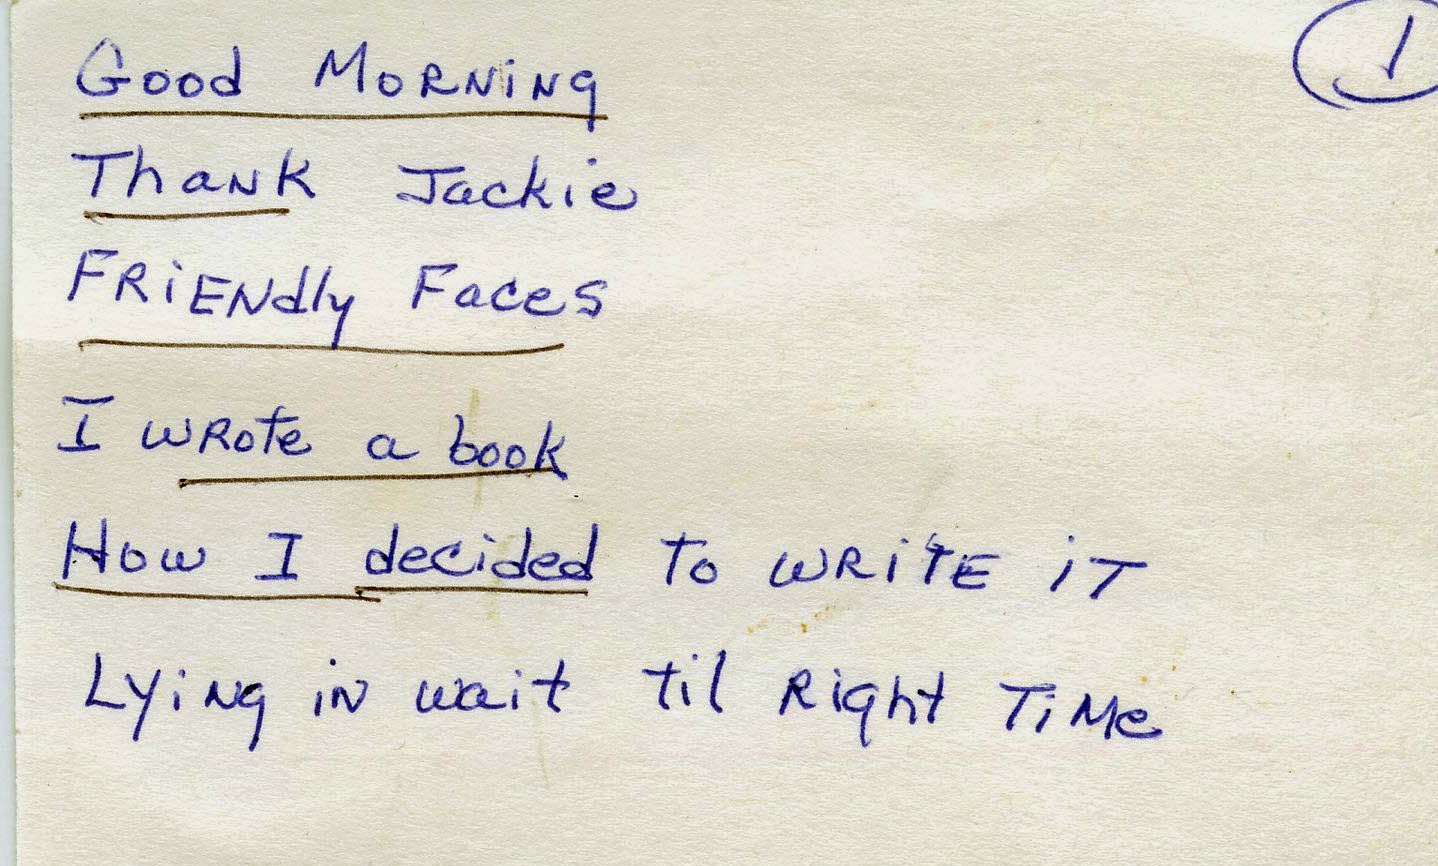 1
Good MORNiNg
ThaNK Jackie
FRiENdly Faces
I wRote a book
How I decided to wRiTE iT
LyiNg iN wait til Right TiMe